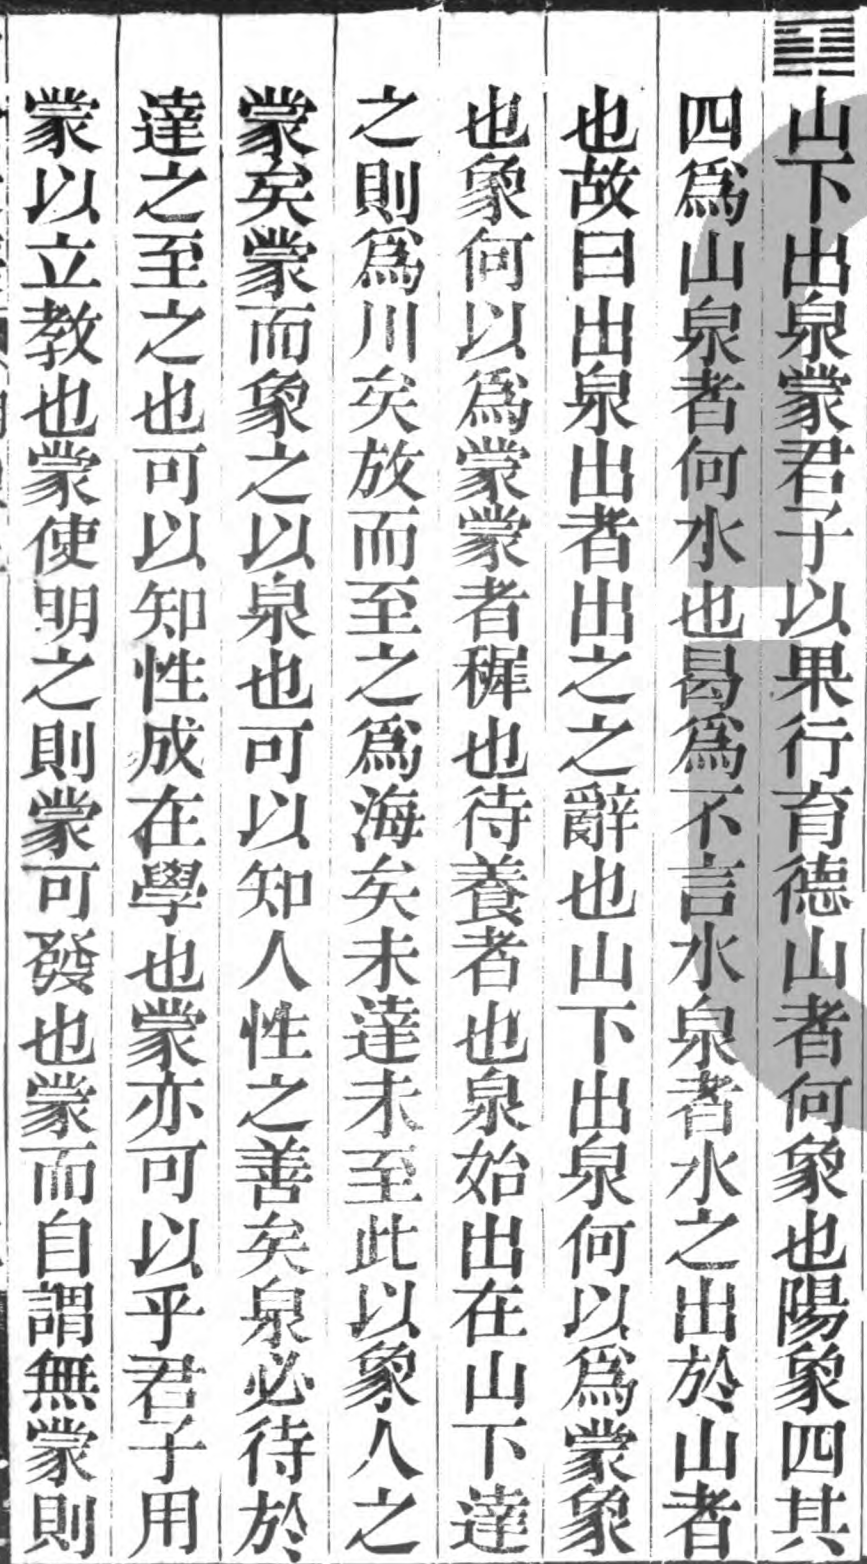 ䷃山下出泉蒙君子以果行育德山者何象也陽象四其
四爲山泉者何水也曷爲不言水泉者水之出於山者
也故曰出泉出者出之之辭也山下出泉何以爲蒙象
也象何以爲蒙蒙者穉也待養者也泉始出在山下達
之則爲川矣放而至之爲海矣未達未至此以象人之
蒙矣蒙而象之以泉也可以知人性之善矣泉必待於
達之至之也可以知性成在學也蒙亦可以乎君子用
蒙以立教也蒙使明之則蒙可發也蒙而自謂無蒙則